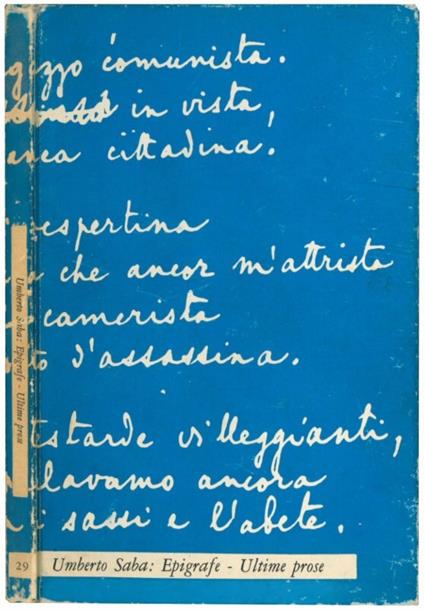 gazzo comunista.
in vista,
anca cittadina.
espertina
che ancor m'attrista
camerista
to d'assassina.
estarde villeggianti,
lavamo ancora
i sassi e l'abete.
Umberto Saba: Epigrafe - Ultime prose
29
Umberto Saba: Epigrafe - Ultime prose